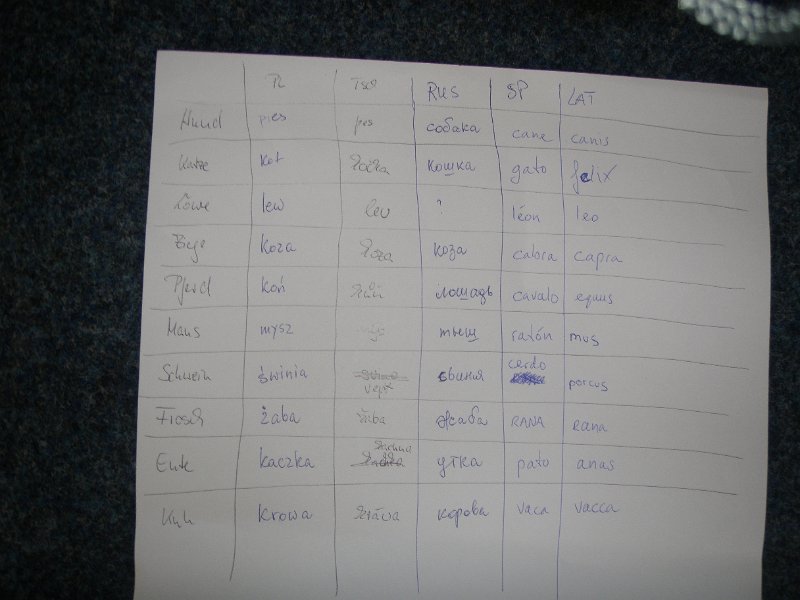 PL TSCH RUS SP LAT
Hund pies pes собака cane canis
Katze kot kočka кошка gato felix
Löwe lew lev ? léon leo
Ziege koza koza коза cabra capra
Pferd koń kůň лошадь cavalo equus
Maus mysz мыш ratón mus
Schwein świnia vepř свиния cerdo porcus
Frosch żaba žába жаба RANA rana
Ente kaczka kachna утка pato anas
Kuh krowa kráva корова vaca vacca